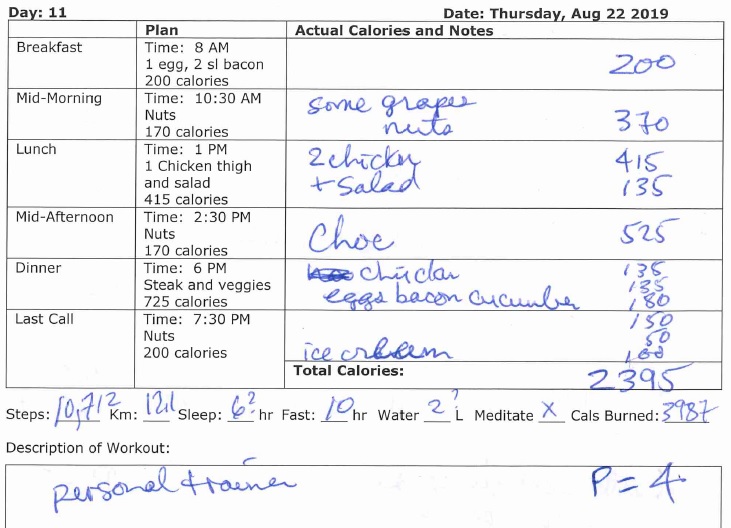 Day: 11 Date: Thursday, Aug 22 2019
Plan Actual Calories and Notes
Breakfast Time: 8 AM
1 egg, 2 sl bacon 200
200 calories
Mid-Morning Time: 10:30 AM some grapes
Nuts nuts 370
170 calories
Lunch Time: 1 PM 2 chicken 415
1 Chicken thigh + Salad 135
and salad
415 calories
Mid-Afternoon Time: 2:30 PM
Nuts Choc 525
170 calories
Dinner Time: 6 PM 135
Steak and veggies eggs bacon cucumber 135
725 calories 180
Last Call Time: 7:30 PM 150
Nuts 50
200 calories ice cream 100
Total Calories: 2395
Steps: 10,712 Km: 12.1 Sleep: 6? hr Fast: 10 hr Water 2? L Meditate X Cals Burned: 3987
Description of Workout:
personal trainer P = 4